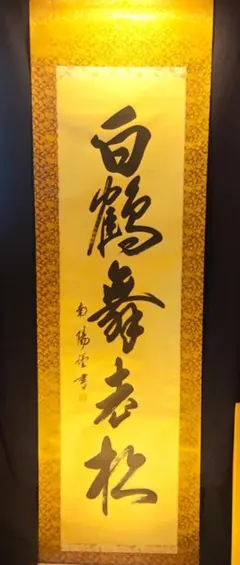 白鶴舞老松
南陽堂書